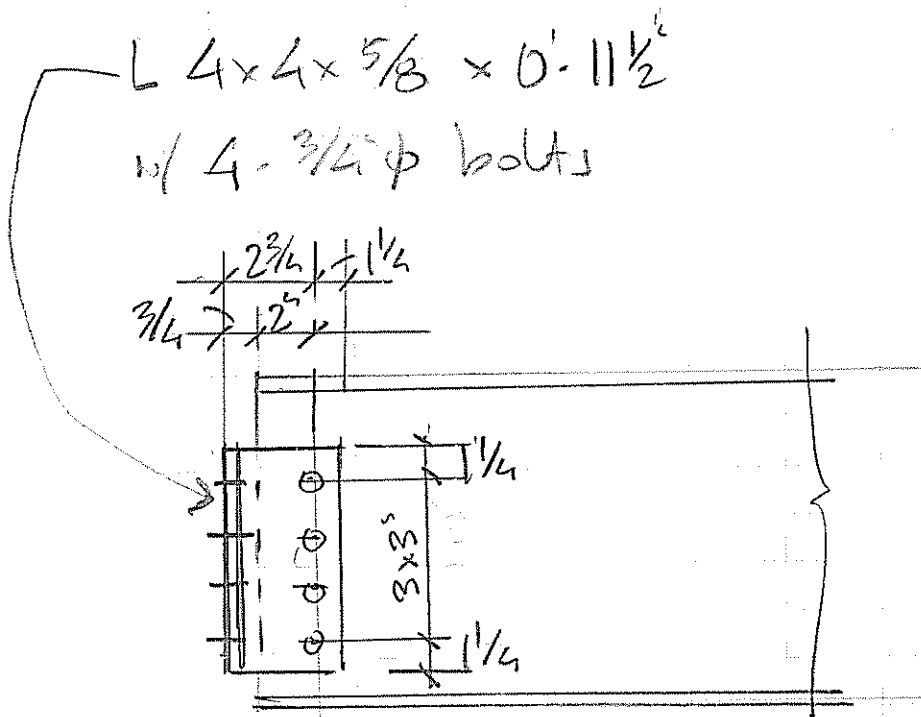 L 4x4x 5/8 x 0'-11 1/2"
w/ 4 - 3/4" φ bolts
2 3/4 1 1/4
3/4 2"
1 1/4
3x3"
1 1/4